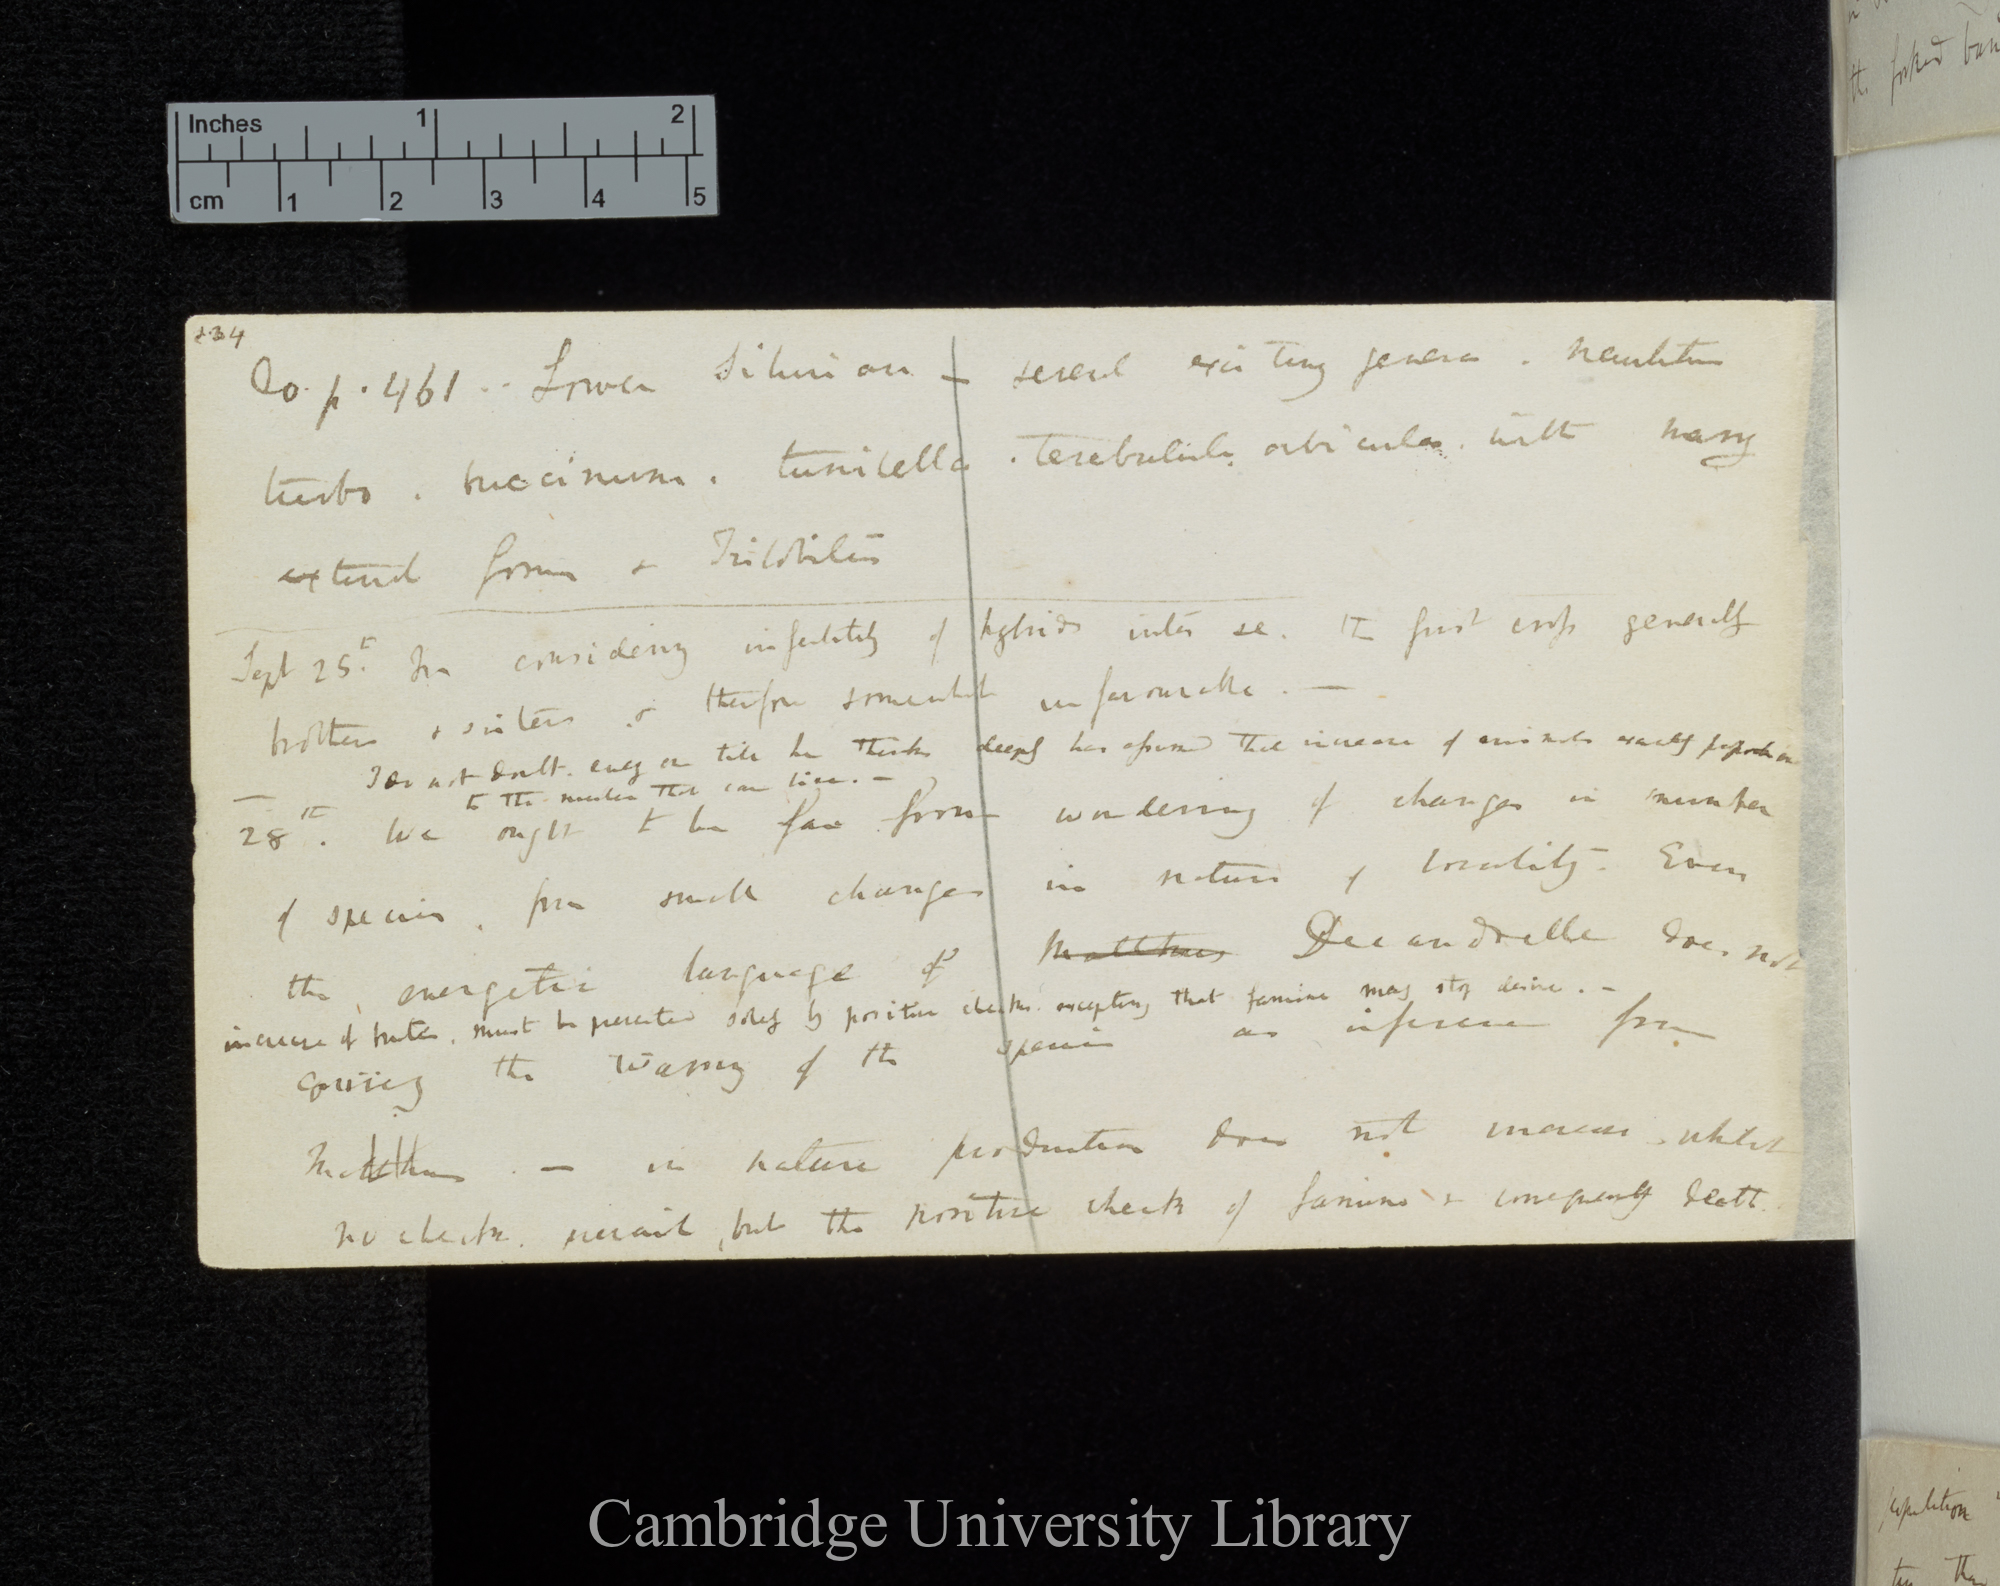 Inches 1 2
cm 1 2 3 4 5
the forked
134
Do. p. 461.. Lower Silurian — several existing genera. nautilus
turbo. buccinum. turritella. terebratula, orbicula. with many
extinct forms & Trilobites
Sept 25th. In considering infertility of hybrids inter se. the first cross generally
brothers & sisters & therefore somewhat unfavourable. —
I do not doubt. every one till he thinks deeply has assumed that increase of animals exactly proportionate
to the number that can live. —
28th. We ought to be far from wondering of changes in number
of species, from small changes in nature of locality. Even
the energetic language of Malthus Decandoelle does not
increase of brutes, must be prevented solely by positive checks. excepting that famine may stop desire. —
convey the warring of the species as inference from
Malthus. — in nature production does not increase, whilst
no checks prevail, but the positive check of famine & consequently death.
population
than
Cambridge University Library